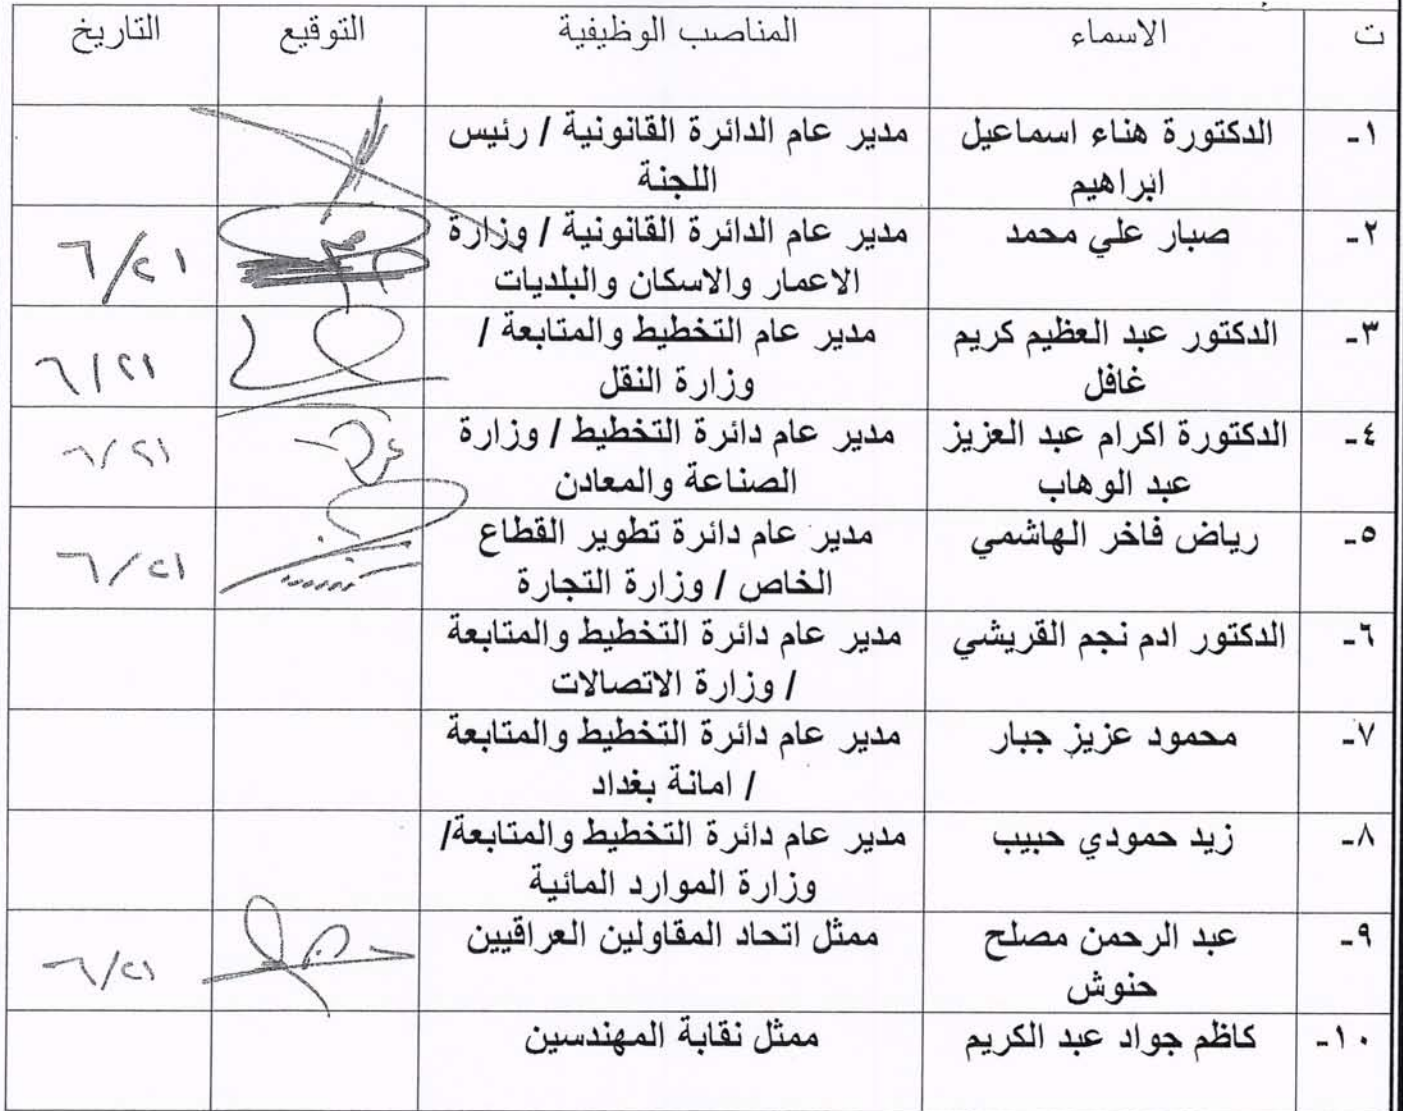 ت الاسماء المناصب الوظيفية التوقيع التاريخ
١- الدكتورة هناء اسماعيل مدير عام الدائرة القانونية / رئيس
ابراهيم اللجنة
٢- صبار علي محمد مدير عام الدائرة القانونية / وزارة ٦/٢١
الاعمار والاسكان والبلديات
٣- الدكتور عبد العظيم كريم مدير عام التخطيط والمتابعة / ٦/٢١
غافل وزارة النقل
٤- الدكتورة اكرام عبد العزيز مدير عام دائرة التخطيط / وزارة ٦/٢١
عبد الوهاب الصناعة والمعادن
٥- رياض فاخر الهاشمي مدير عام دائرة تطوير القطاع ٦/٢١
الخاص / وزارة التجارة
٦- الدكتور ادم نجم القريشي مدير عام دائرة التخطيط والمتابعة
/ وزارة الاتصالات
٧- محمود عزيز جبار مدير عام دائرة التخطيط والمتابعة
/ امانة بغداد
٨- زيد حمودي حبيب مدير عام دائرة التخطيط والمتابعة/
وزارة الموارد المائية
٩- عبد الرحمن مصلح ممثل اتحاد المقاولين العراقيين ٦/٢١
حنوش
١٠- كاظم جواد عبد الكريم ممثل نقابة المهندسين